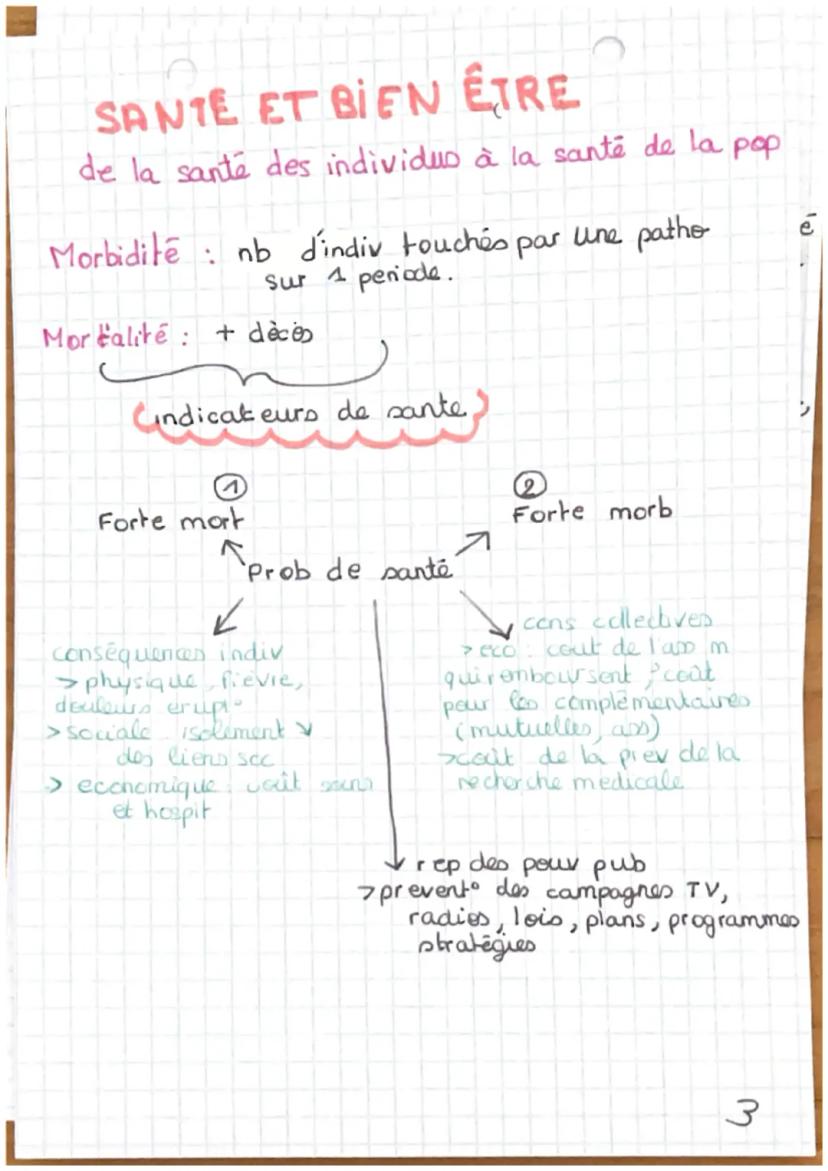 SANTÉ ET BIEN ÊTRE
de la santé des individus à la santé de la pop
Morbidité : nb d'indiv touchés par une patho
sur 1 periode.
Mortalité : + décès
indicateurs de sante
①
Forte mort
②
Forte morb
Prob de santé
conséquences indiv
> physique, fièvre,
douleurs erupt°
> sociale isolement ↘
des liens soc
> economique : coût soins
et hospit
cons collectives
> eco : cout de l'ass m
qui remboursent, coût
pour les complémentaires
(mutuelles, ass)
> coût de la prev de la
recherche medicale
rep des pouv pub
> prevent° des campagnes TV,
radios, lois, plans, programmes
stratégies
3
é